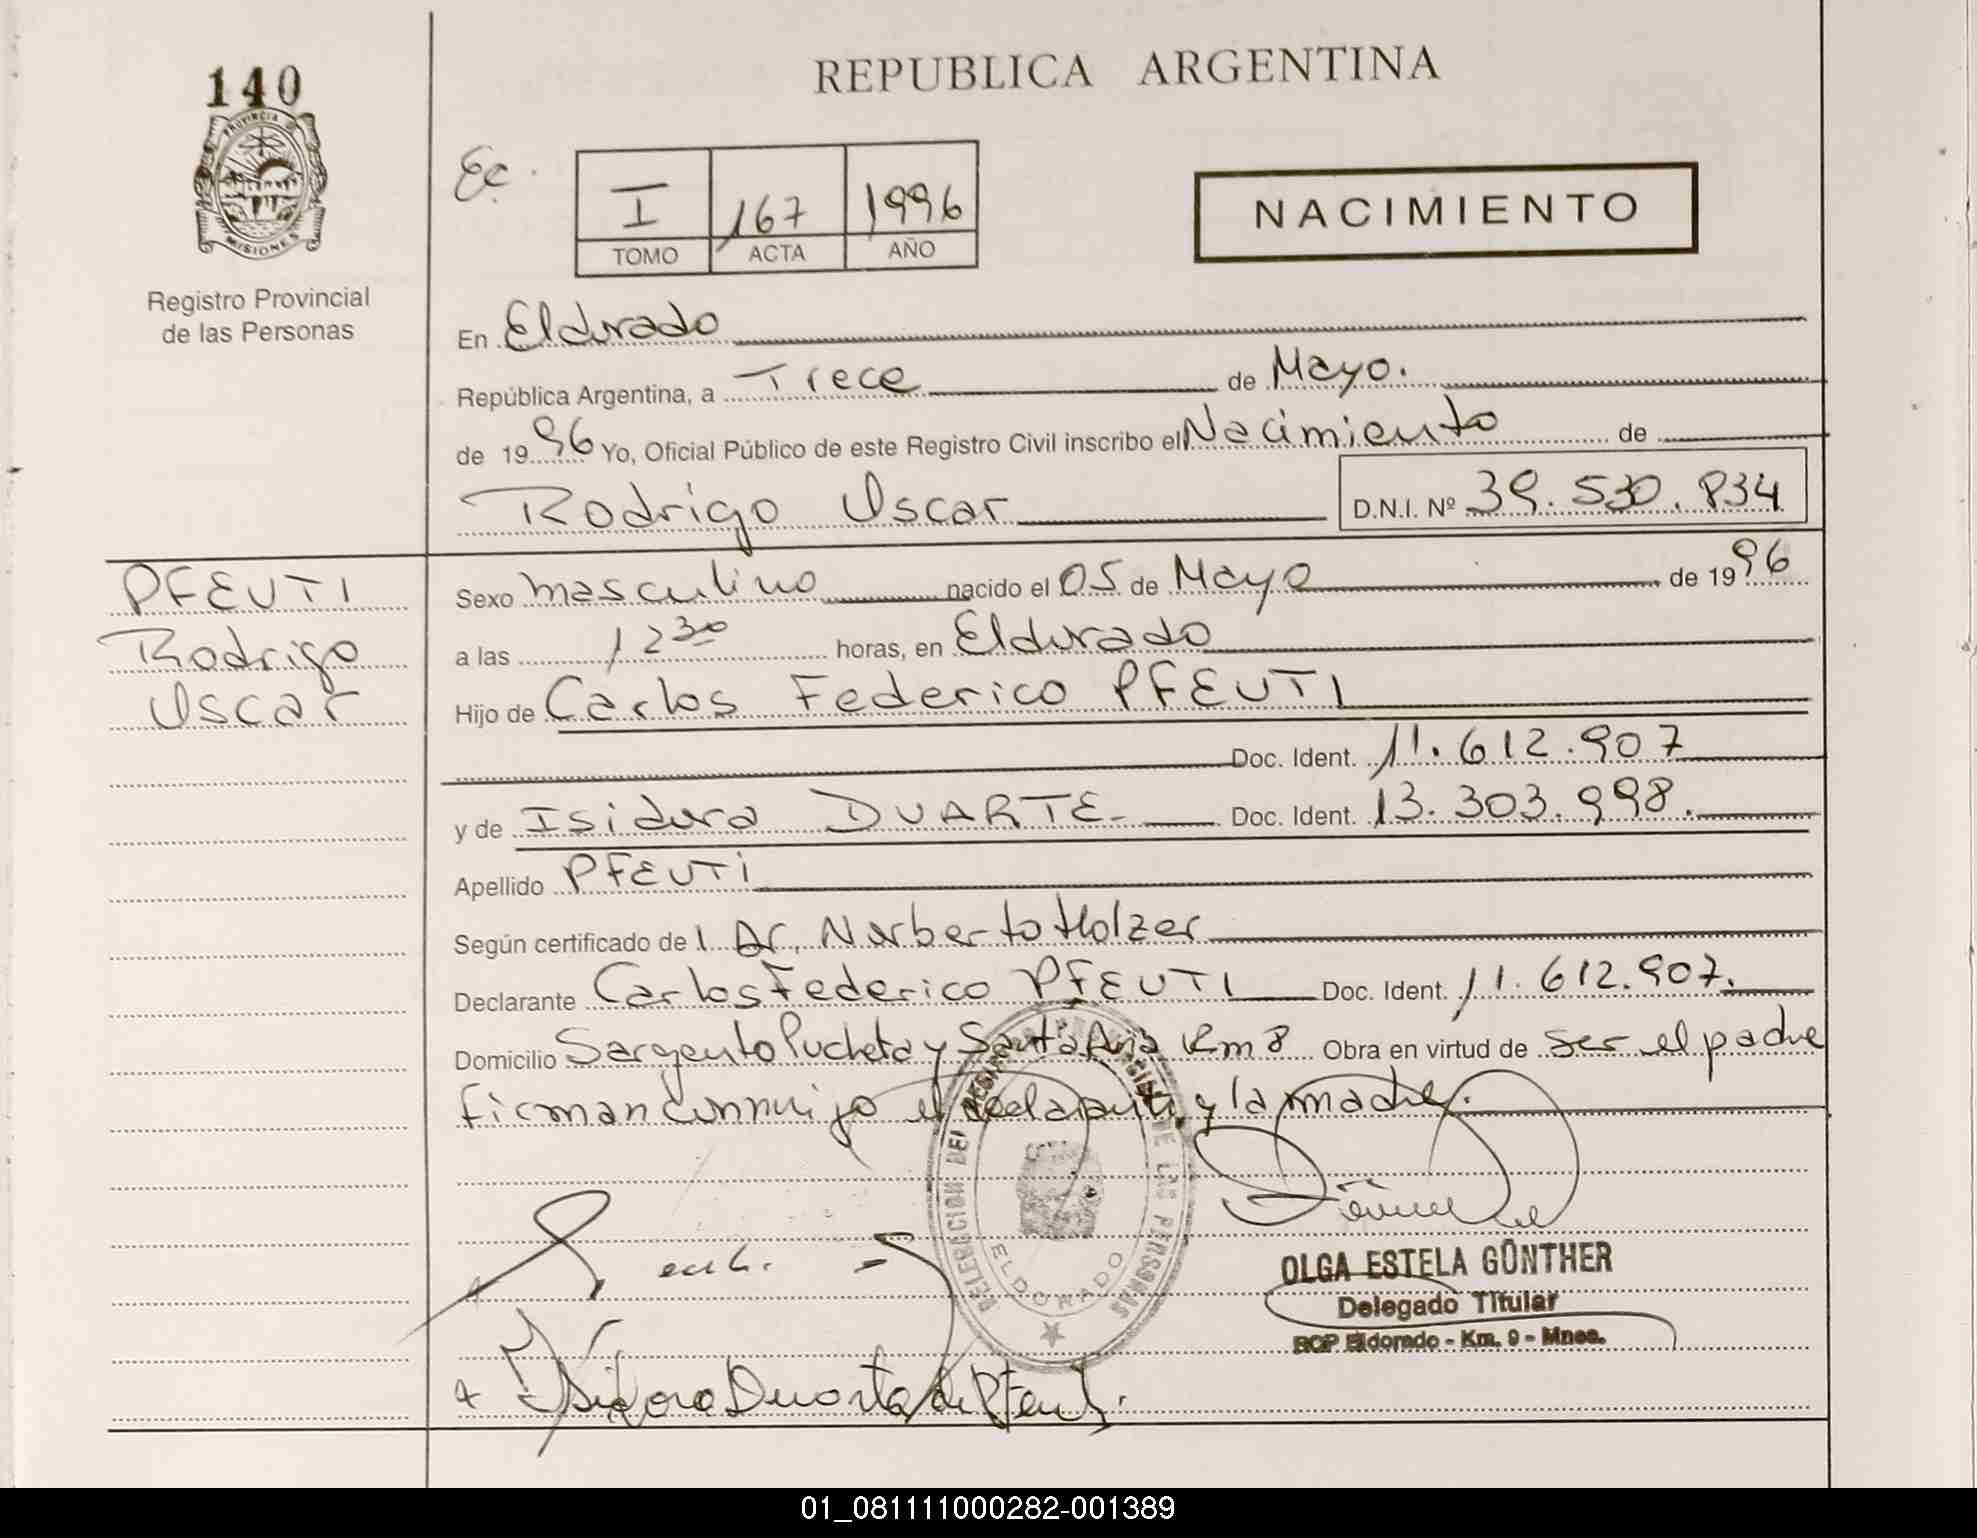 140
PROVINCIA DE
MISIONES
Registro Provincial
de las Personas
REPUBLICA ARGENTINA
Ec.
I 167 1996
TOMO ACTA AÑO
NACIMIENTO
En Eldorado
República Argentina, a Trece de Mayo.
de 1996 Yo, Oficial Público de este Registro Civil inscribo el Nacimiento de
Rodrigo Oscar D.N.I. Nº 39.530.834
PFEUTI
Rodrigo
Oscar
Sexo masculino nacido el 05 de Mayo de 1996
a las 12 30 horas, en Eldorado
Hijo de Carlos Federico PFEUTI
Doc. Ident. 11.612.907
y de Isidora DUARTE Doc. Ident. 13.303.998.
Apellido PFEUTI
Según certificado de l Dr. Norberto Holzer
Declarante Carlos Federico PFEUTI Doc. Ident. 11.612.907.
Domicilio Sargento Pucheta y Santa Ana Km 8 Obra en virtud de ser el padre
firman conmigo el declarante y la madre.
DELEGACION DEL REGISTRO PROVINCIAL DE LAS PERSONAS
ELDORADO
OLGA ESTELA GÜNTHER
Delegado Titular
RCP Eldorado - Km. 9 - Mnes.
Isidora Duarte de Pfeuti.
01_081111000282-001389